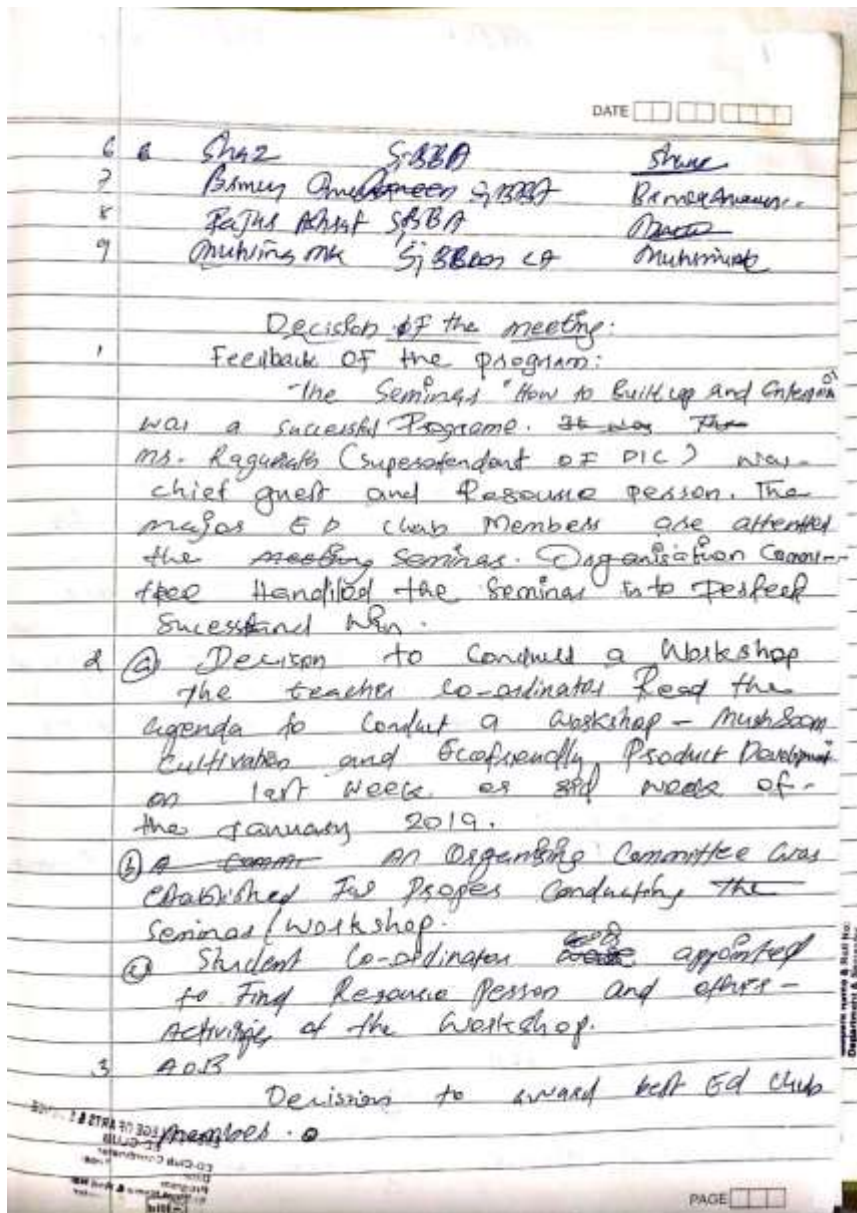 DATE
6 Shaz SiBBA
7
8 Fajus Ashraf SiBBA
9 Muhsina MK
Decision of the meeting:
1 Feedback OF the program:
"The Seminar "How to Built up and
was a sucessful Programe.
Mr. Ragunath (Superatendant OF DIC) was
chief guest and Resource person. The
major ED club Members are attented
the seminar. Organisation Commi-
ttee Handiled the Seminar to perfect
Sucess and
2 (a) Decison to Conduct a Workshop
The teacher Co-ordinator Read the
agenda to Conduct a workshop - Mushroom
Cultivation and Ecofriendly Product Development
on last week or 3rd week of -
the January 2019.
(b) An Organising Committee was
established For Proper Conducting the
Seminar/workshop.
(c) Student Co-ordinator appointed
to Find Resource Person and others -
Activities of the Workshop.
3 A.O.B
Decision to award best Ed Club
member.
PAGE